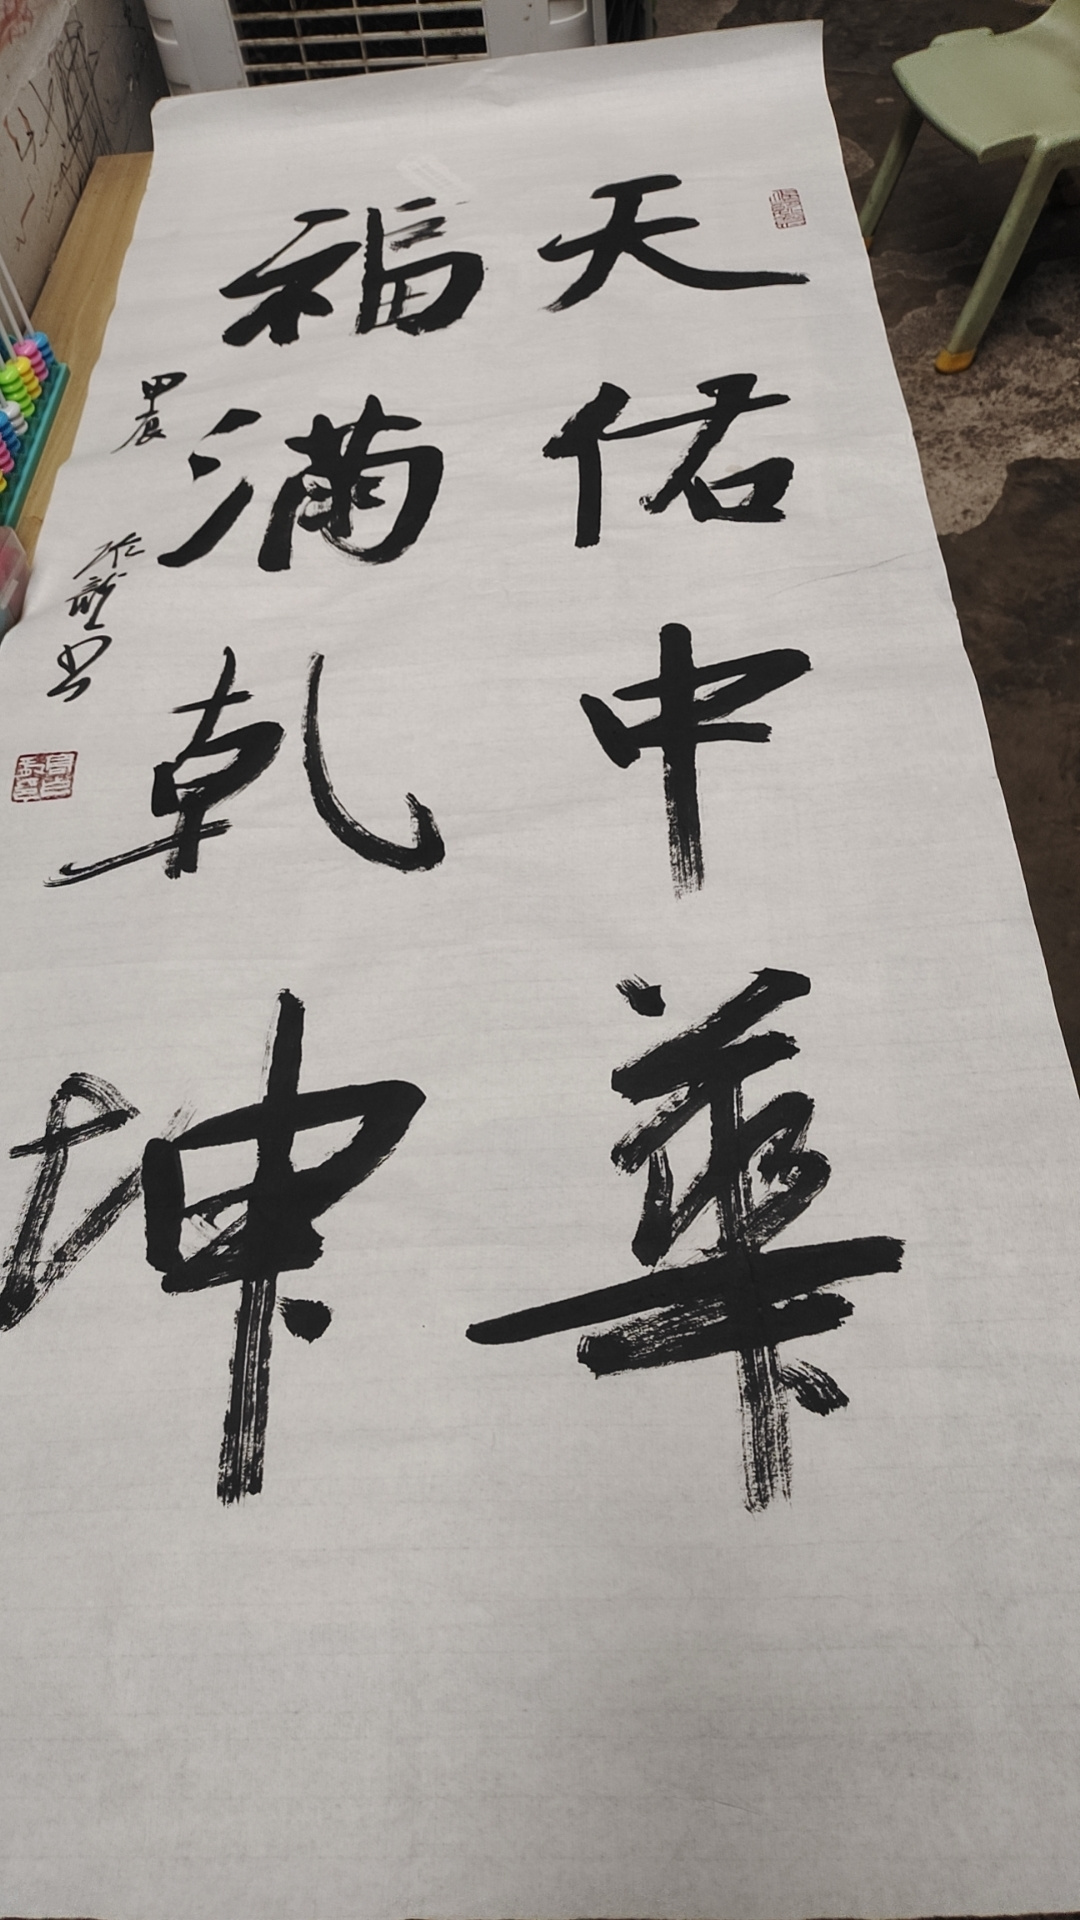 天佑中華
福滿乾坤
甲辰
書